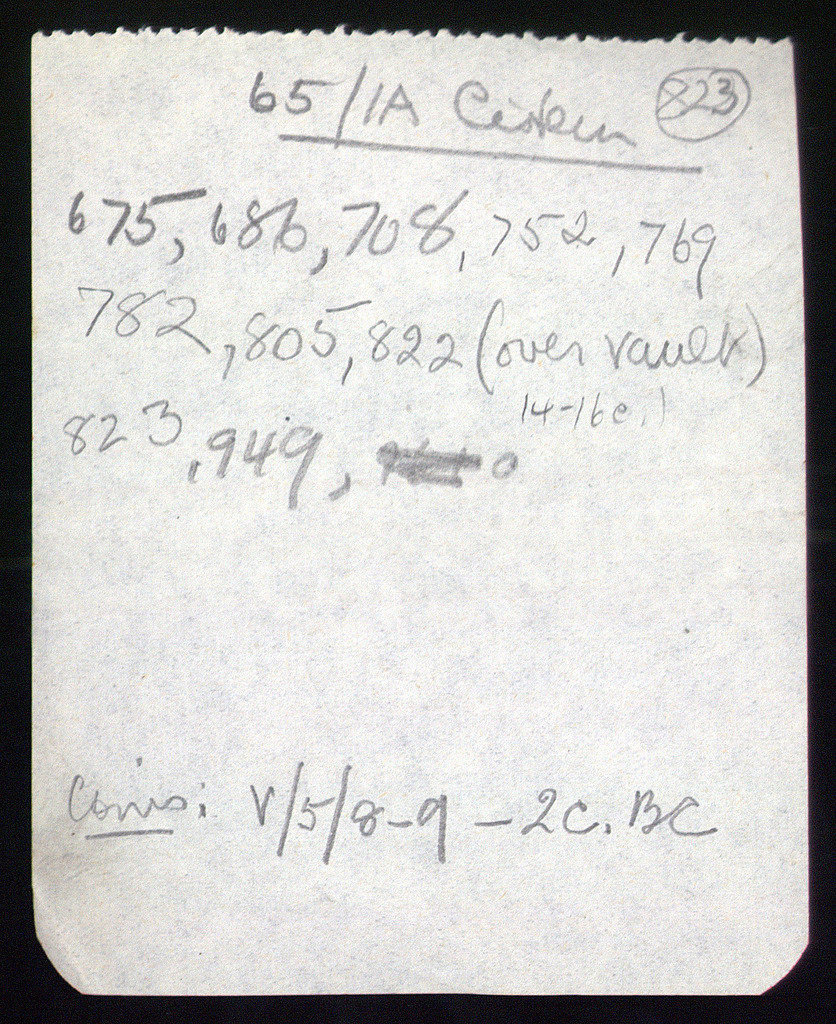 65/1A Cistern 823
675, 686, 708, 752, 769
782, 805, 822 (over vault)
14-16c.)
823, 949,
Coins: V/5/8-9 - 2c. BC